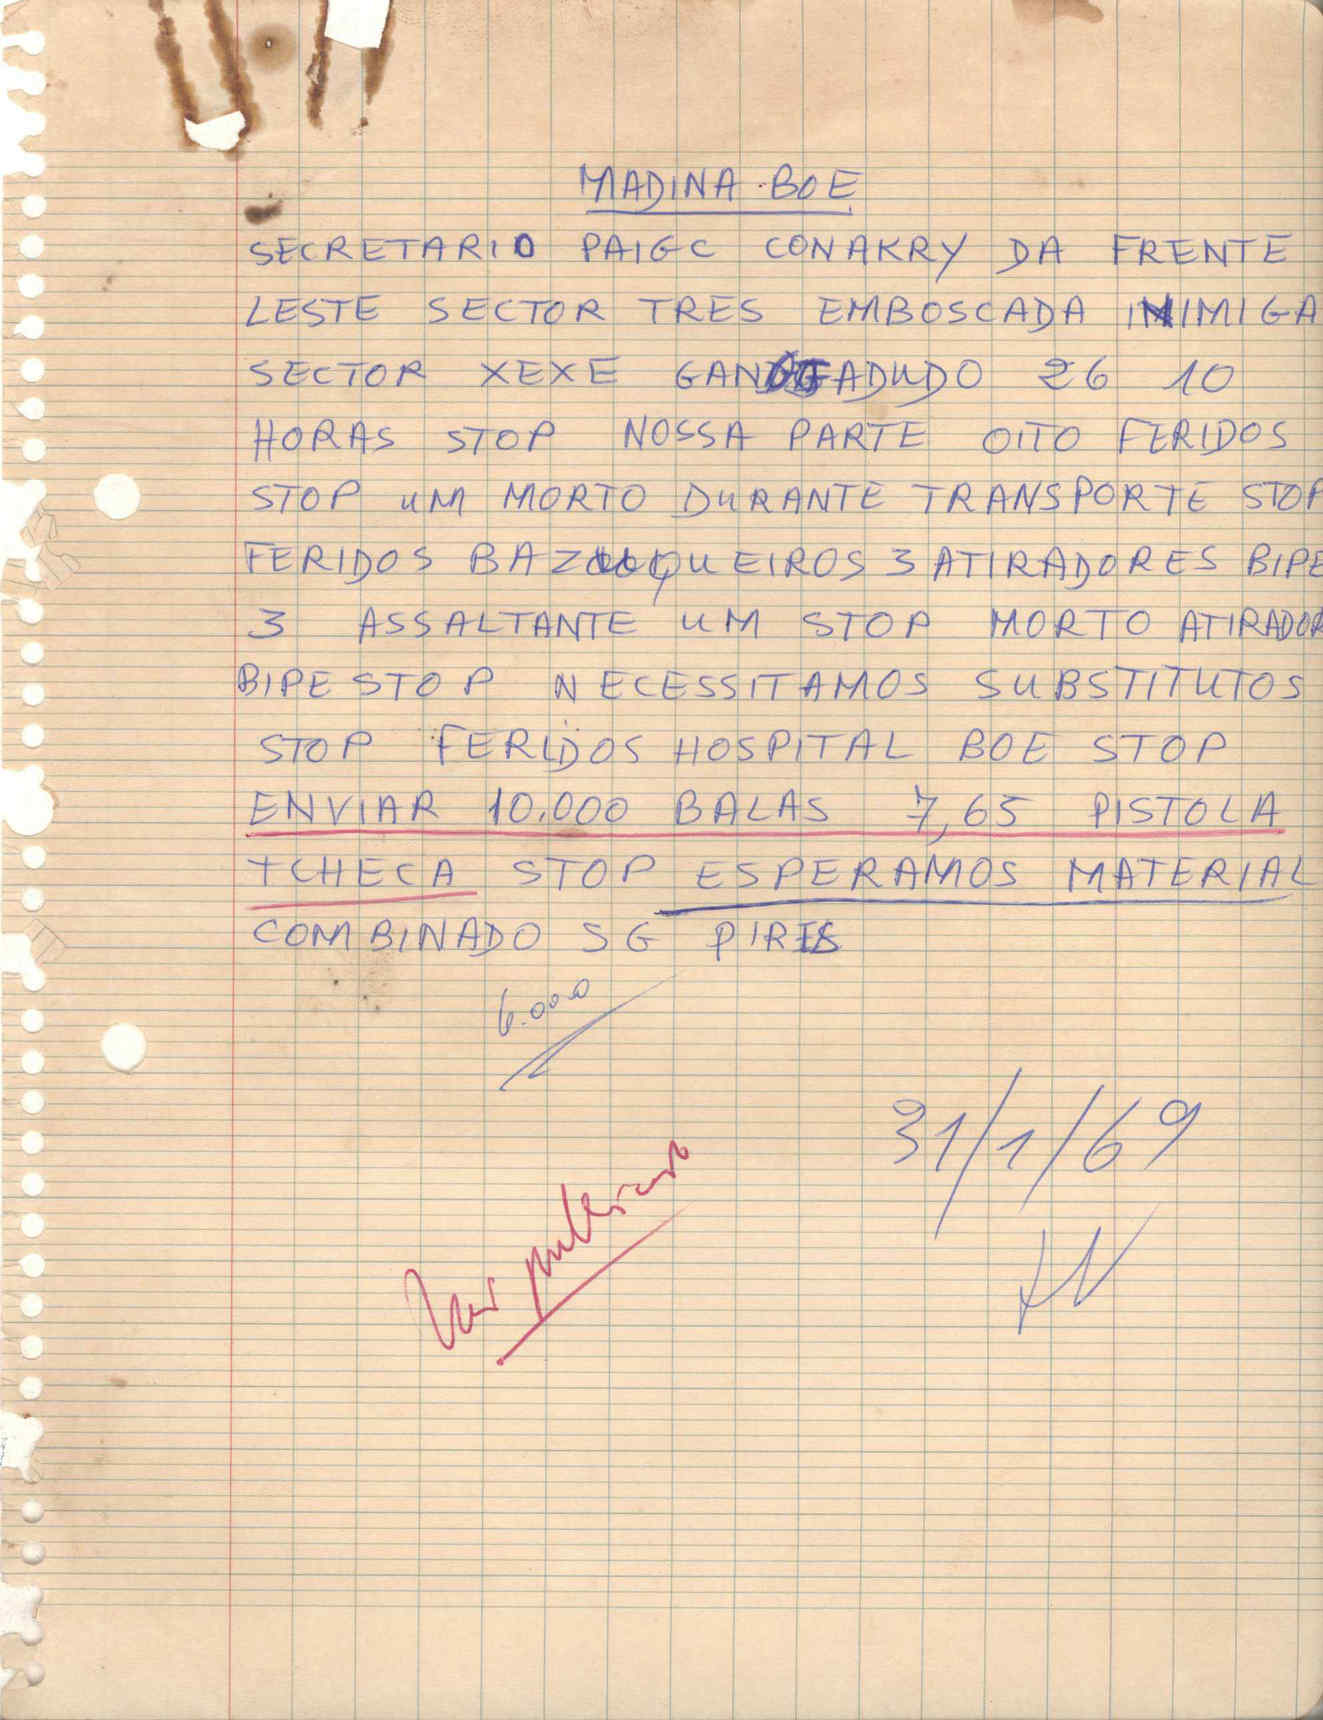 MADINA BOE
SECRETARIO PAIGC CONAKRY DA FRENTE
LESTE SECTOR TRES EMBOSCADA INIMIGA
SECTOR XEXE 26 10
HORAS STOP NOSSA PARTE OITO FERIDOS
STOP UM MORTO DURANTE TRANSPORTE STOP
FERIDOS BAZUQUEIROS 3 ATIRADORES BIPE
3 ASSALTANTE UM STOP MORTO ATIRADOR
BIPE STOP NECESSITAMOS SUBSTITUTOS
STOP FERIDOS HOSPITAL BOE STOP
ENVIAR 10.000 BALAS 7,65 PISTOLA
TCHECA STOP ESPERAMOS MATERIAL
COMBINADO SG PIRES
6.000
31/1/69